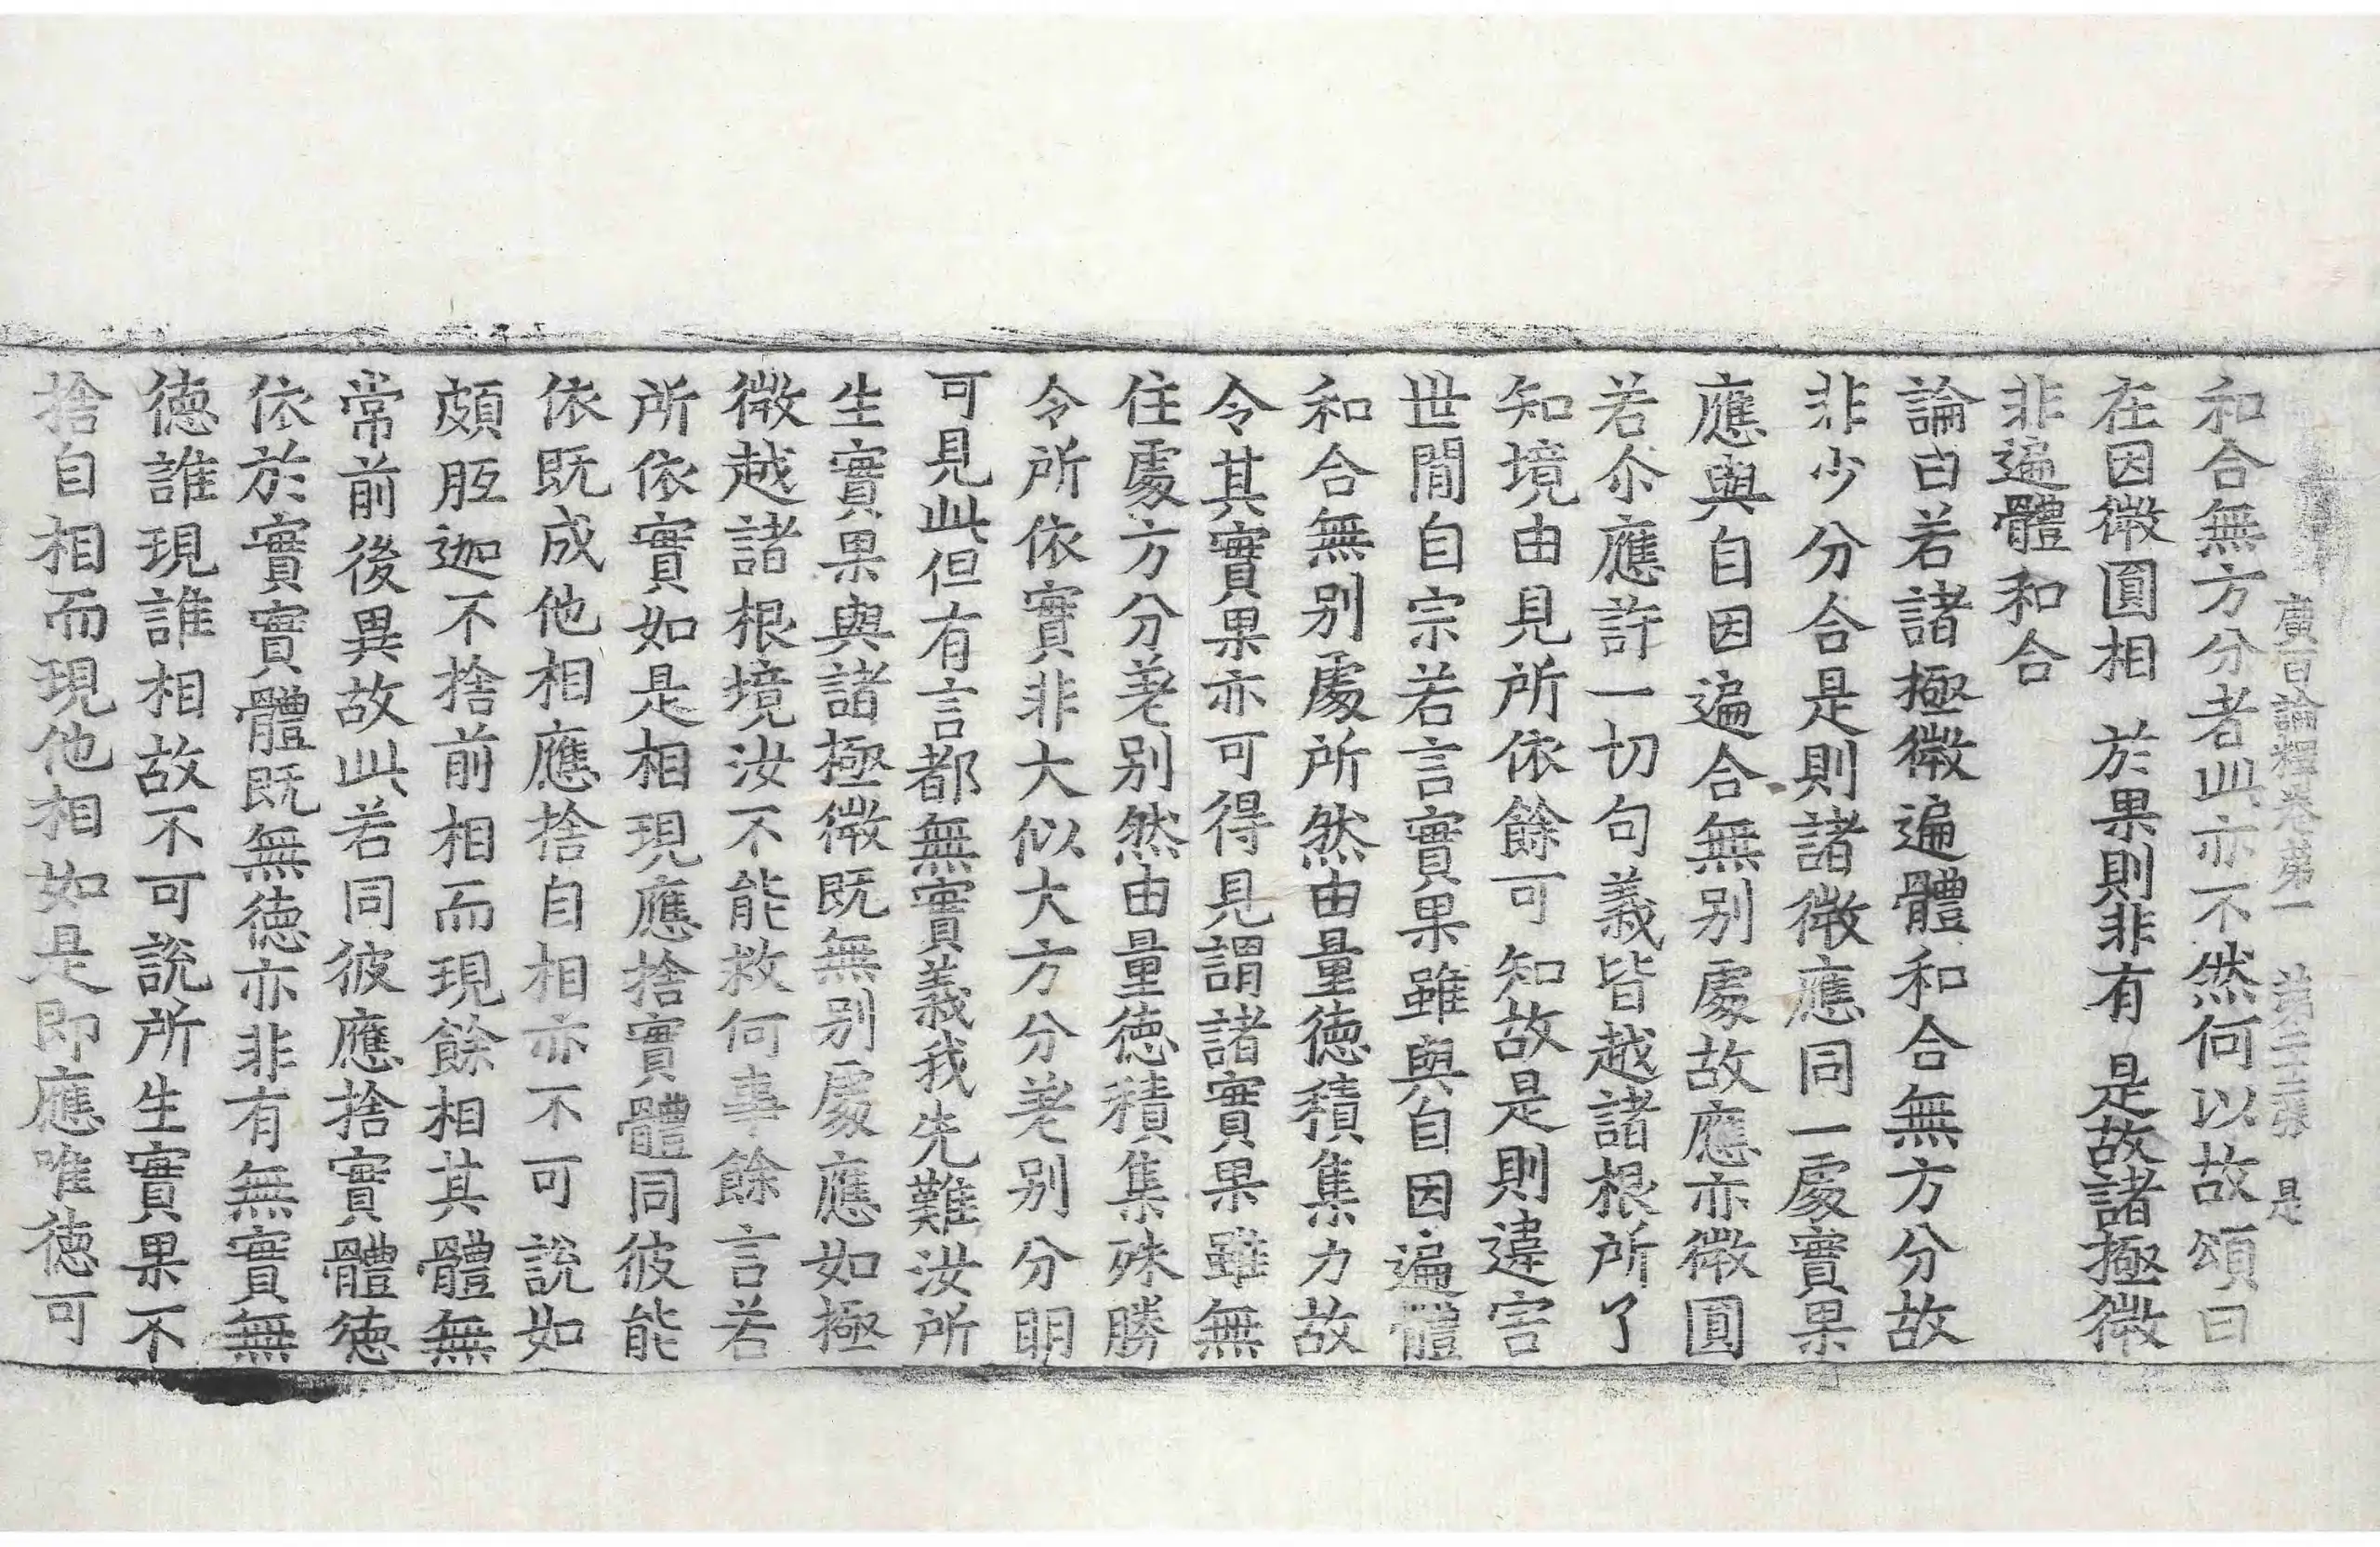 廣百論釋卷第一 第二十二張 是
和合無方分者此亦不然何以故頌曰
在因微圓相 於果則非有 是故諸極微
非遍體和合
論曰若諸極微遍體和合無方分故
非少分合是則諸微應同一處實果
應與自因遍合無別處故應亦微圓
若尒應許一切句義皆越諸根所了
知境由見所依餘可知故是則違害
世間自宗若言實果雖與自因遍體
和合無別處所然由量德積集力故
令其實果亦可得見謂諸實果雖無
住處方分差別然由量德積集殊勝
令所依實非大似大方分差別分明
可見此但有言都無實義我先難汝所
生實果與諸極微既無別處應如極
微越諸根境汝不能救何事餘言若
所依實如是相現應捨實體同彼能
依既成他相應捨自相亦不可說如
頗胝迦不捨前相而現餘相其體無
常前後異故此若同彼應捨實體德
依於實實體既無德亦非有無實無
德誰現誰相故不可說所生實果不
捨自相而現他相如是即應唯德可